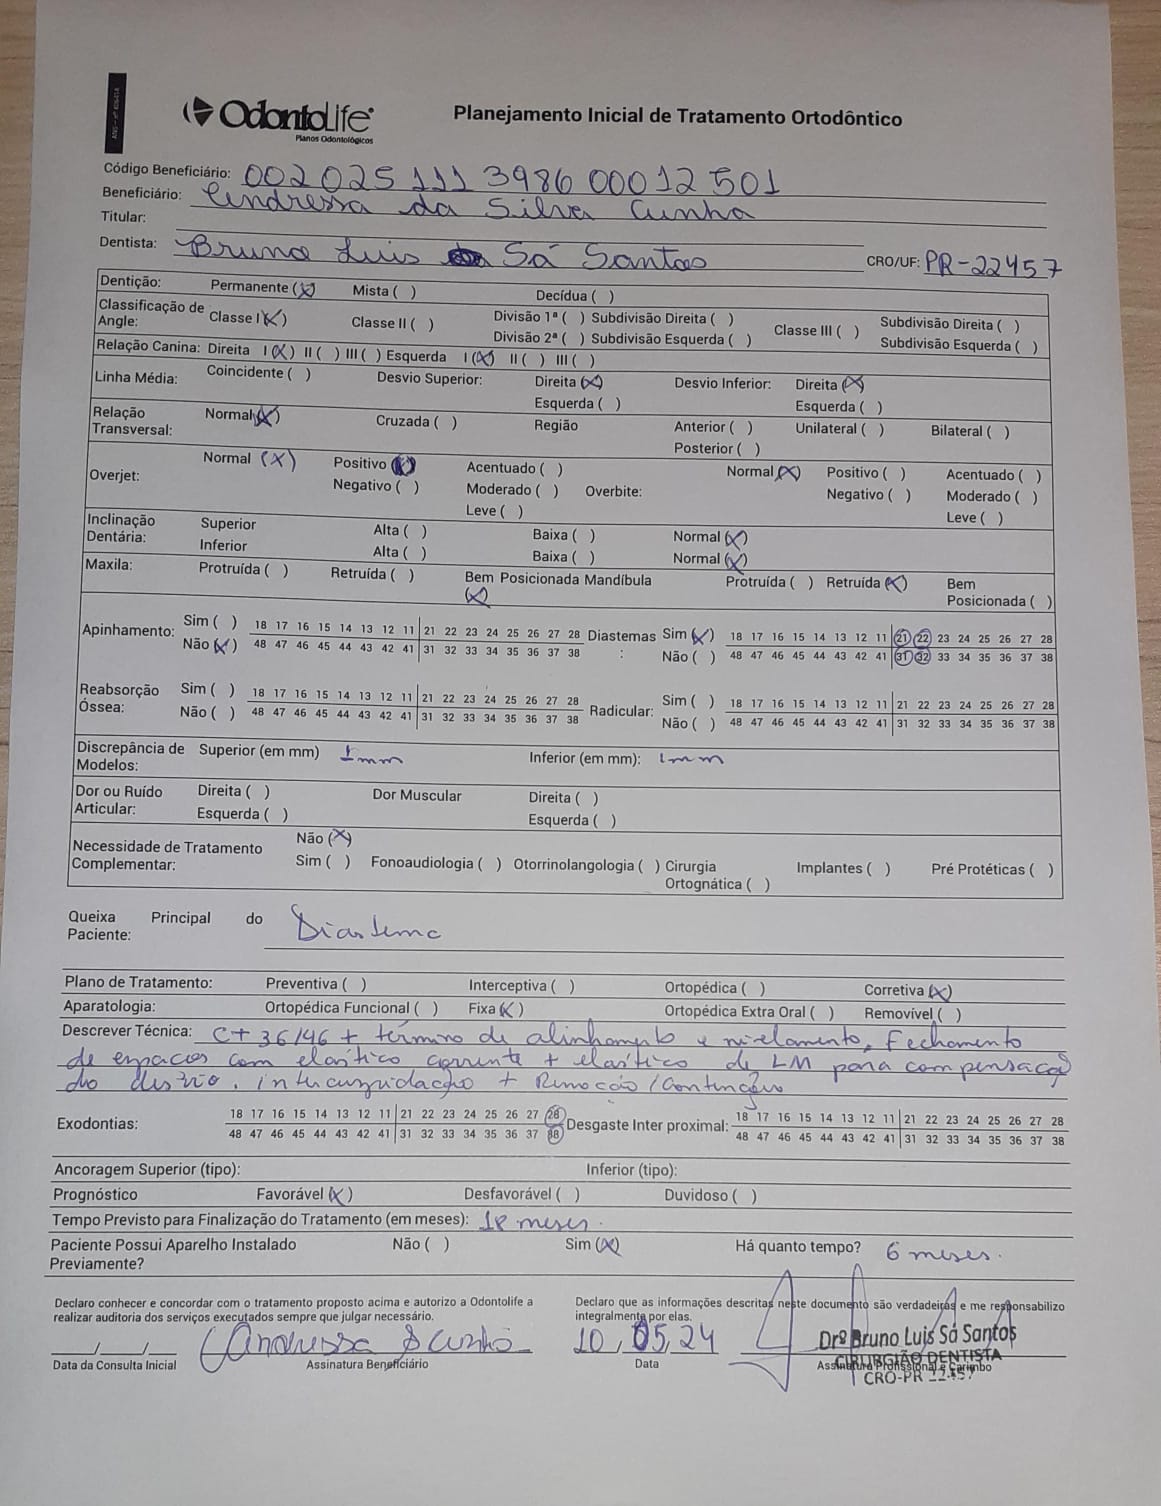 OdontoLife
Planos Odontológicos
Planejamento Inicial de Tratamento Ortodôntico
Código Beneficiário: 002 025 111 3986 000 12 501
Beneficiário: Andressa da Silva Cunha
Titular:
Dentista: Bruno Luis Sá Santos CRO/UF: PR-22457
Dentição: Permanente (X) Mista ( ) Decídua ( )
Classificação de Angle: Classe I (X) Classe II ( ) Divisão 1ª ( ) Subdivisão Direita ( ) Classe III ( ) Subdivisão Direita ( )
Divisão 2ª ( ) Subdivisão Esquerda ( ) Subdivisão Esquerda ( )
Relação Canina: Direita I (X) II ( ) III ( ) Esquerda I (X) II ( ) III ( )
Linha Média: Coincidente ( ) Desvio Superior: Direita (X) Desvio Inferior: Direita (X)
Esquerda ( ) Esquerda ( )
Relação Transversal: Normal (X) Cruzada ( ) Região Anterior ( ) Unilateral ( ) Bilateral ( )
Posterior ( )
Overjet: Normal (X) Positivo ( ) Acentuado ( ) Overbite: Normal (X) Positivo ( ) Acentuado ( )
Negativo ( ) Moderado ( ) Negativo ( ) Moderado ( )
Leve ( ) Leve ( )
Inclinação Dentária: Superior Alta ( ) Baixa ( ) Normal (X)
Inferior Alta ( ) Baixa ( ) Normal (X)
Maxila: Protruída ( ) Retruída ( ) Bem Posicionada (X) Mandíbula Protruída ( ) Retruída (X) Bem Posicionada ( )
Apinhamento: Sim ( ) 18 17 16 15 14 13 12 11 21 22 23 24 25 26 27 28 Diastemas: Sim (X) 18 17 16 15 14 13 12 11 21 22 23 24 25 26 27 28
Não (X) 48 47 46 45 44 43 42 41 31 32 33 34 35 36 37 38 Não ( ) 48 47 46 45 44 43 42 41 31 32 33 34 35 36 37 38
Reabsorção Óssea: Sim ( ) 18 17 16 15 14 13 12 11 21 22 23 24 25 26 27 28 Radicular: Sim ( ) 18 17 16 15 14 13 12 11 21 22 23 24 25 26 27 28
Não ( ) 48 47 46 45 44 43 42 41 31 32 33 34 35 36 37 38 Não ( ) 48 47 46 45 44 43 42 41 31 32 33 34 35 36 37 38
Discrepância de Modelos: Superior (em mm) 1mm Inferior (em mm): 1mm
Dor ou Ruído Articular: Direita ( ) Dor Muscular Direita ( )
Esquerda ( ) Esquerda ( )
Necessidade de Tratamento Complementar: Não (X)
Sim ( ) Fonoaudiologia ( ) Otorrinolangologia ( ) Cirurgia Ortognática ( ) Implantes ( ) Pré Protéticas ( )
Queixa Principal do Paciente: Diastema
Plano de Tratamento: Preventiva ( ) Interceptiva ( ) Ortopédica ( ) Corretiva (X)
Aparatologia: Ortopédica Funcional ( ) Fixa (X) Ortopédica Extra Oral ( ) Removível ( )
Descrever Técnica: C+ 36/46 + término de alinhamento e nivelamento, Fechamento
de espacos com elastico corrente + elastico de LM para compensação
do desvio. intercuspidação + Remoção/Contenção
Exodontias: 18 17 16 15 14 13 12 11 21 22 23 24 25 26 27 28 Desgaste Inter proximal: 18 17 16 15 14 13 12 11 21 22 23 24 25 26 27 28
48 47 46 45 44 43 42 41 31 32 33 34 35 36 37 38 48 47 46 45 44 43 42 41 31 32 33 34 35 36 37 38
Ancoragem Superior (tipo): Inferior (tipo):
Prognóstico Favorável (X) Desfavorável ( ) Duvidoso ( )
Tempo Previsto para Finalização do Tratamento (em meses): 18 meses.
Paciente Possui Aparelho Instalado Previamente? Não ( ) Sim (X) Há quanto tempo? 6 meses.
Declaro conhecer e concordar com o tratamento proposto acima e autorizo a Odontolife a
realizar auditoria dos serviços executados sempre que julgar necessário.
Declaro que as informações descritas neste documento são verdadeiras e me responsabilizo
integralmente por elas.
__/__/__ Andressa S Cunha 10, 05, 24
Data da Consulta Inicial Assinatura Beneficiário Data Assinatura Profissional e Carimbo
Drº Bruno Luis Sá Santos
CIRURGIÃO DENTISTA
CRO-PR 22457